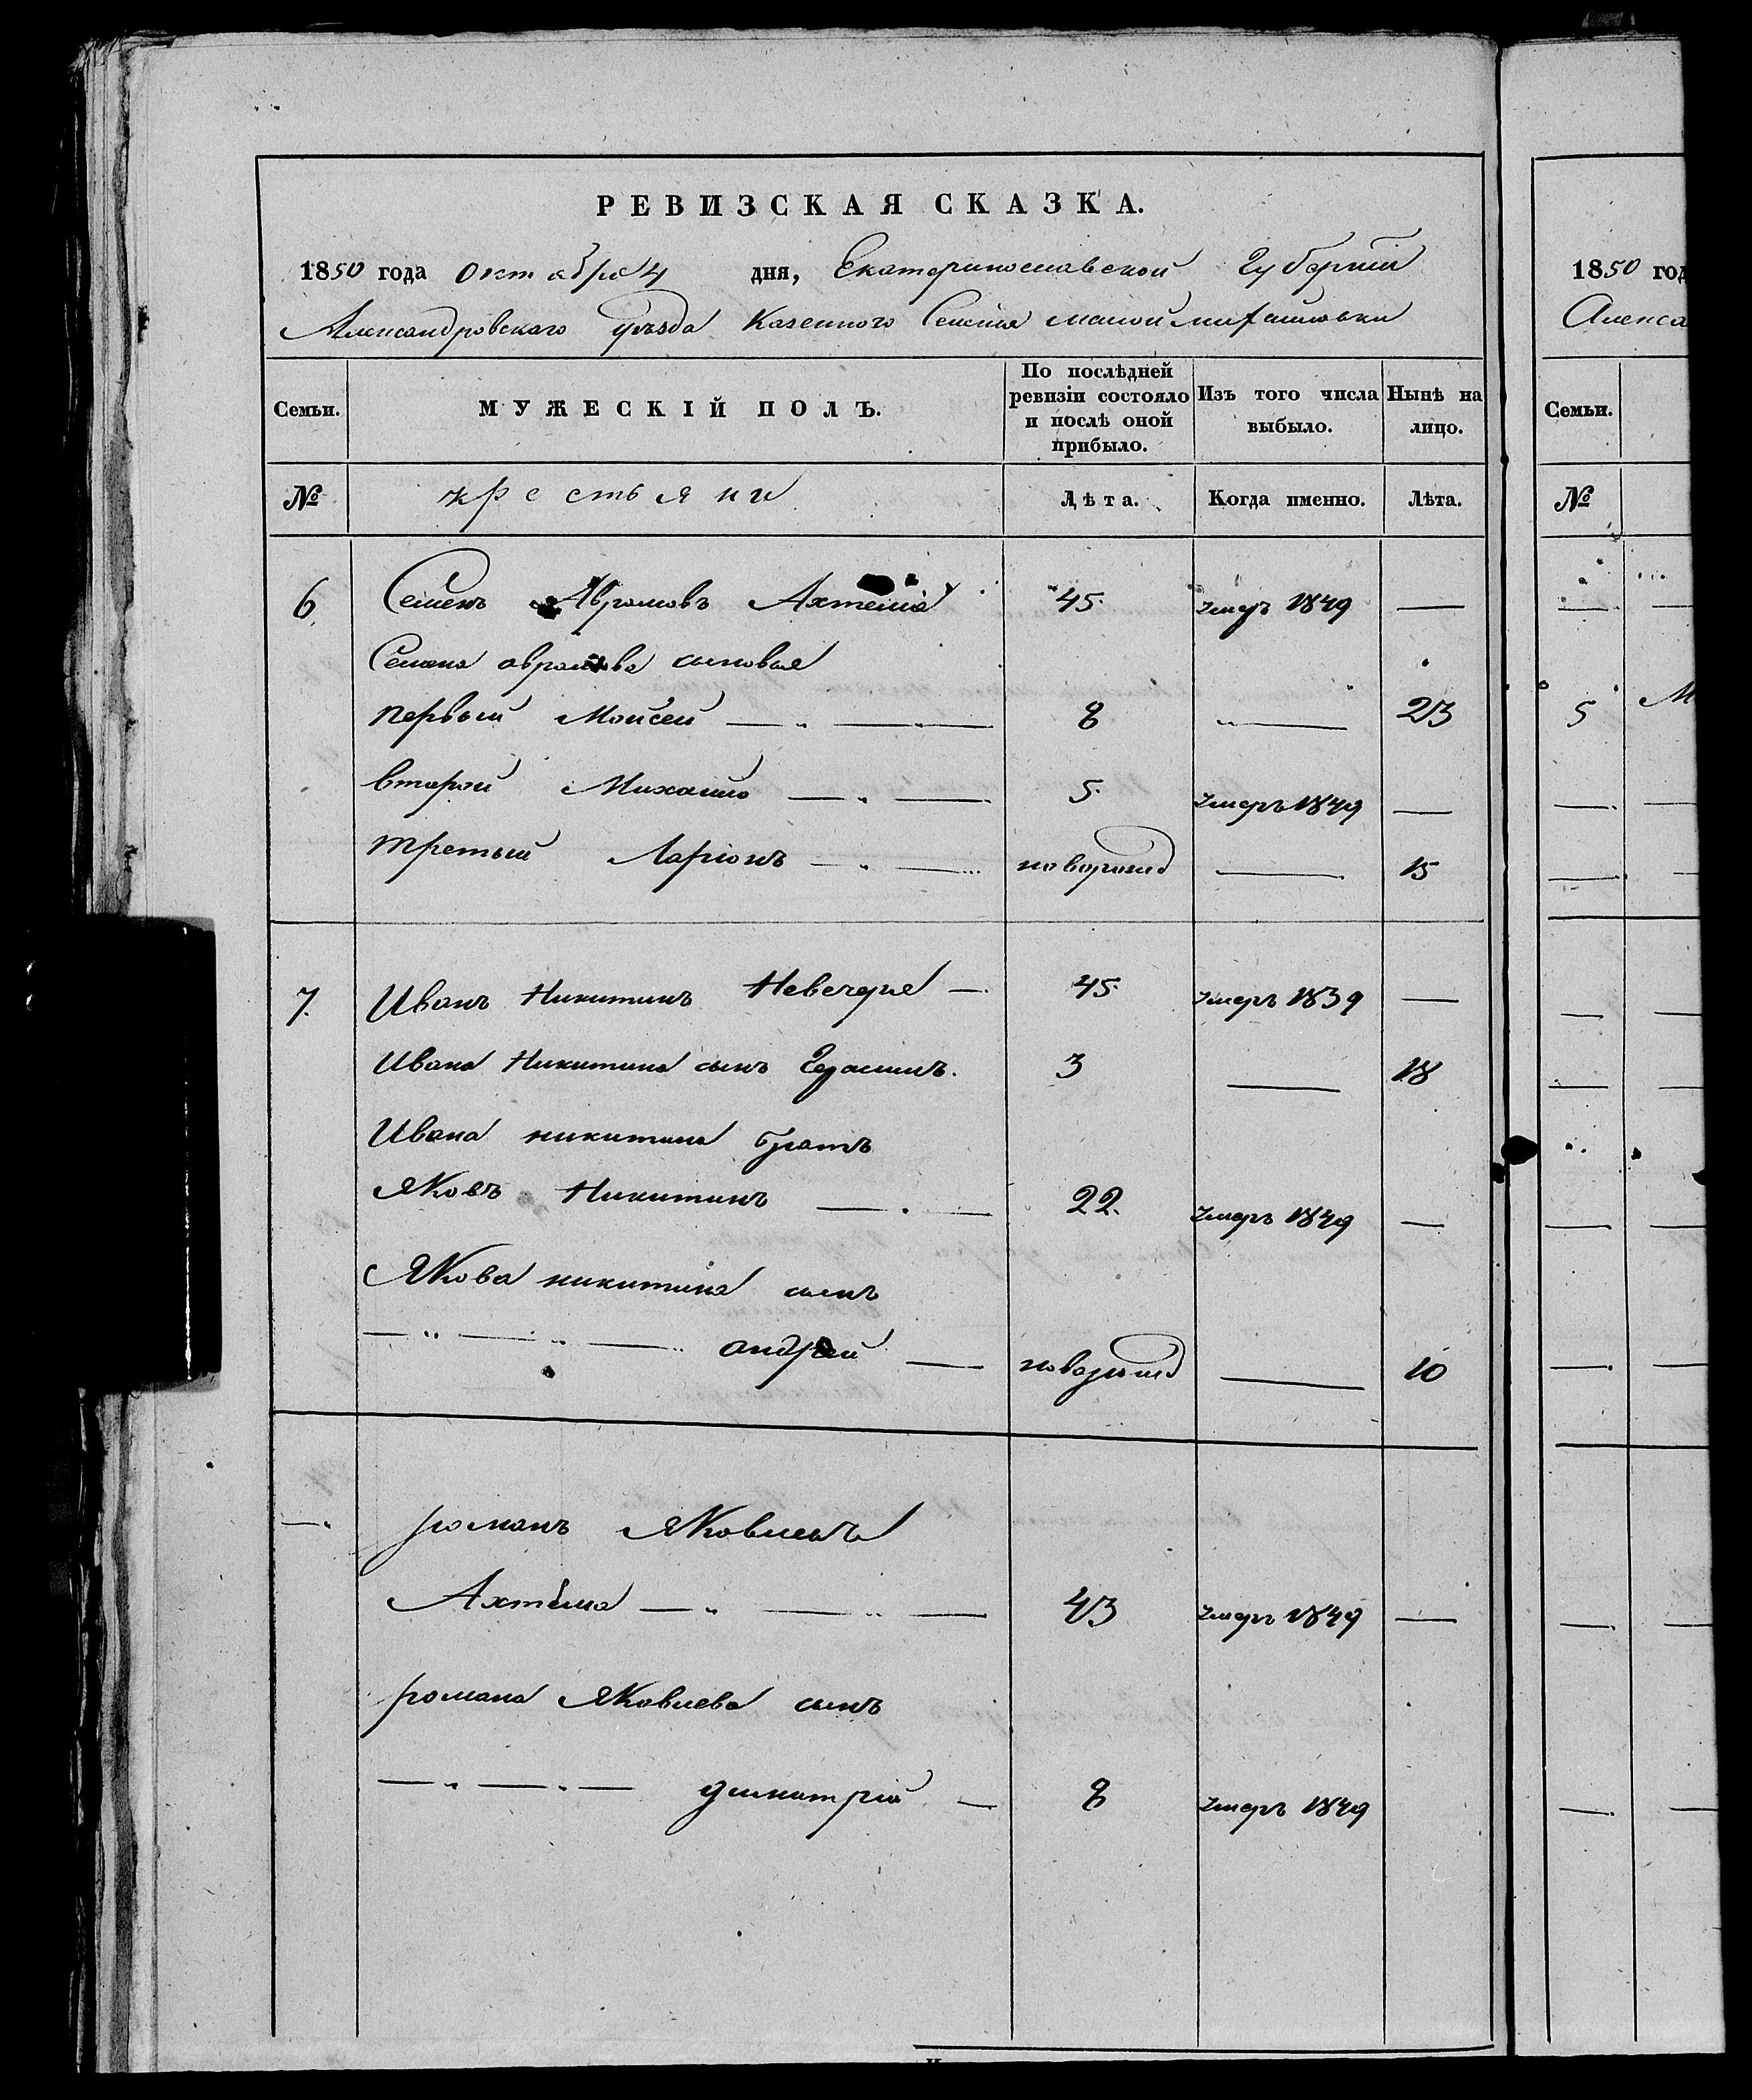 РЕВИЗСКАЯ СКАЗКА.
1850 года октября 4 дня, Екатеринославской Губернии
Александровскаго уезда Казенного Селения малой михайловки
Семьи. МУЖЕСКІЙ ПОЛЪ. По послѣдней ревизіи состояло и послѣ оной прибыло. Изъ того числа выбыло. Нынѣ на лицо.
№ крестьяни Лѣта. Когда именно. Лѣта.
6 Семенъ Аврамовъ Ахтема 45. умеръ 1849 —
Семена аврамова сыновья
первый Моисей — „ — „ — 8 „ — 23
второй Михайло — „ — 5. умеръ 1849 —
третьый Ларіонъ — „ — новорожд — 15
7. Иванъ Никитинъ Невечеря — 45. умеръ 1839 —
Ивана Никитина сынъ Герасимъ. 3 — 18
Ивана никитина братъ
Яковъ Никитинъ — „ — 22. умеръ 1849 —
Якова никитина сынъ
— „ — „ — „ андрей — новорожд — 10
— „ романъ Яковлевъ
Ахтема — „ — „ — 43 умеръ 1849 —
романа Яковлева сынъ
— „ — „ — димитрій — 8 умеръ 1849
1850 год
Алекса
Семьи.
№
5 М